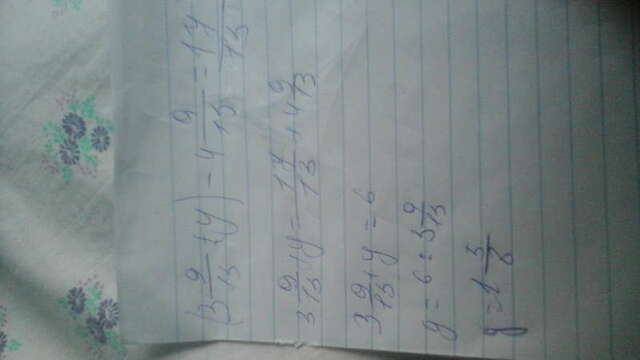 (3 9/13 + y) - 4 9/13 = 17/13
3 9/13 + y = 17/13 + 4 9/13
3 9/13 + y = 6
y = 6 : 3 9/13
y = 1 5/8